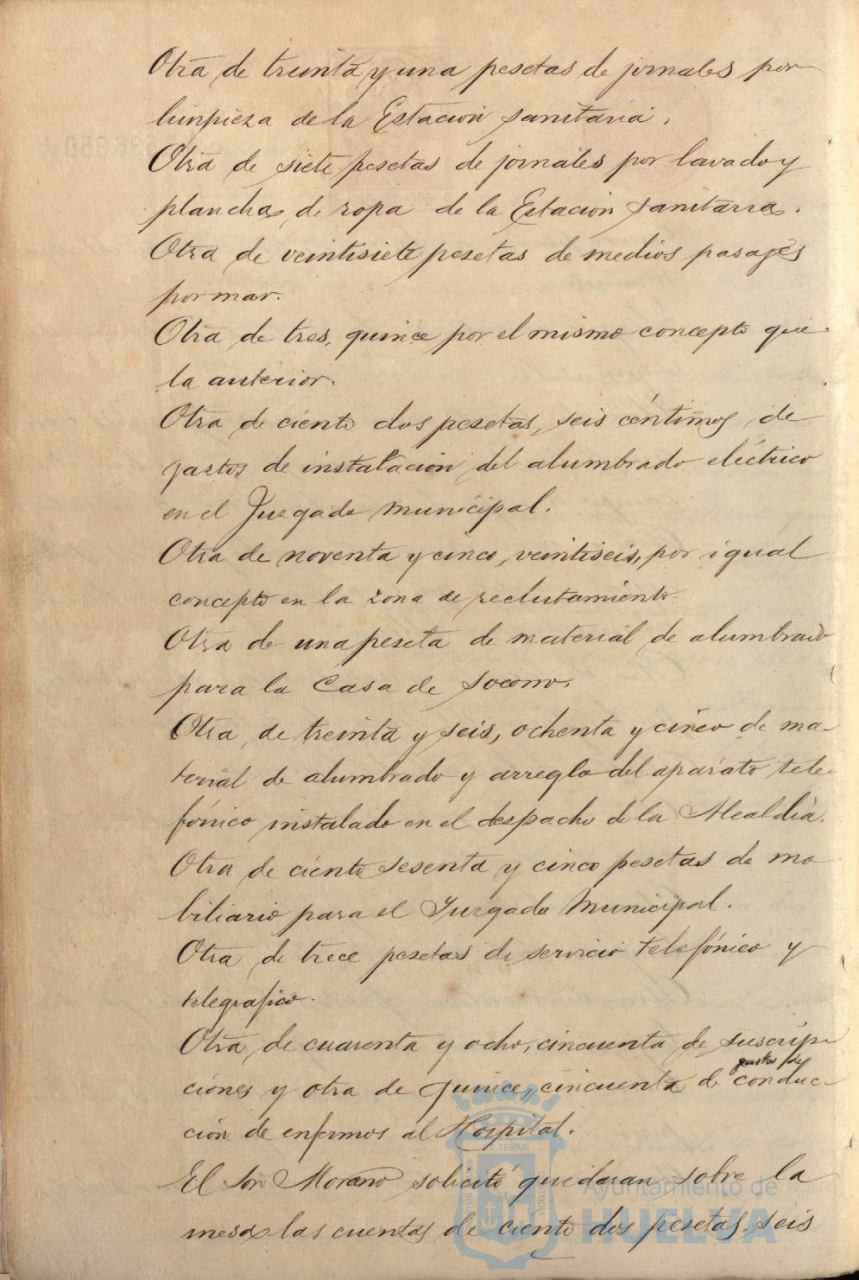 Otra de treinta y una pesetas de jornales por
limpieza de la Estacion sanitaria.
Otra de siete pesetas de jornales por lavado y
plancha de ropa de la Estacion sanitaria.
Otra de veintisiete pesetas de medios pasages
por mar.
Otra de tres, quince por el mismo concepto que
la anterior.
Otra de ciento dos pesetas, seis céntimos, de
gastos de instalación del alumbrado eléctrico
en el Juzgado municipal.
Otra de noventa y cinco, veintiseis, por igual
concepto en la zona de reclutamiento.
Otra de una peseta de material de alumbrado
para la Casa de Socorro.
Otra, de treinta y seis, ochenta y cinco de ma-
terial de alumbrado y arreglo del aparato tele-
fónico instalado en el despacho de la Alcaldía.
Otra de ciento sesenta y cinco pesetas de mo
biliario para el Juzgado Municipal.
Otra de trece pesetas de servicio telefónico y
telegrafico.
Otra de cuarenta y ocho, cincuenta de suscrip-
gastos de
ciones y otra de quince, cincuenta de conduc-
ción de enfermos al Hospital.
El Sor Moreno solicitó quedaran sobre la
mesa las cuentas de ciento dos pesetas, seis
Ayuntamiento de
HUELVA